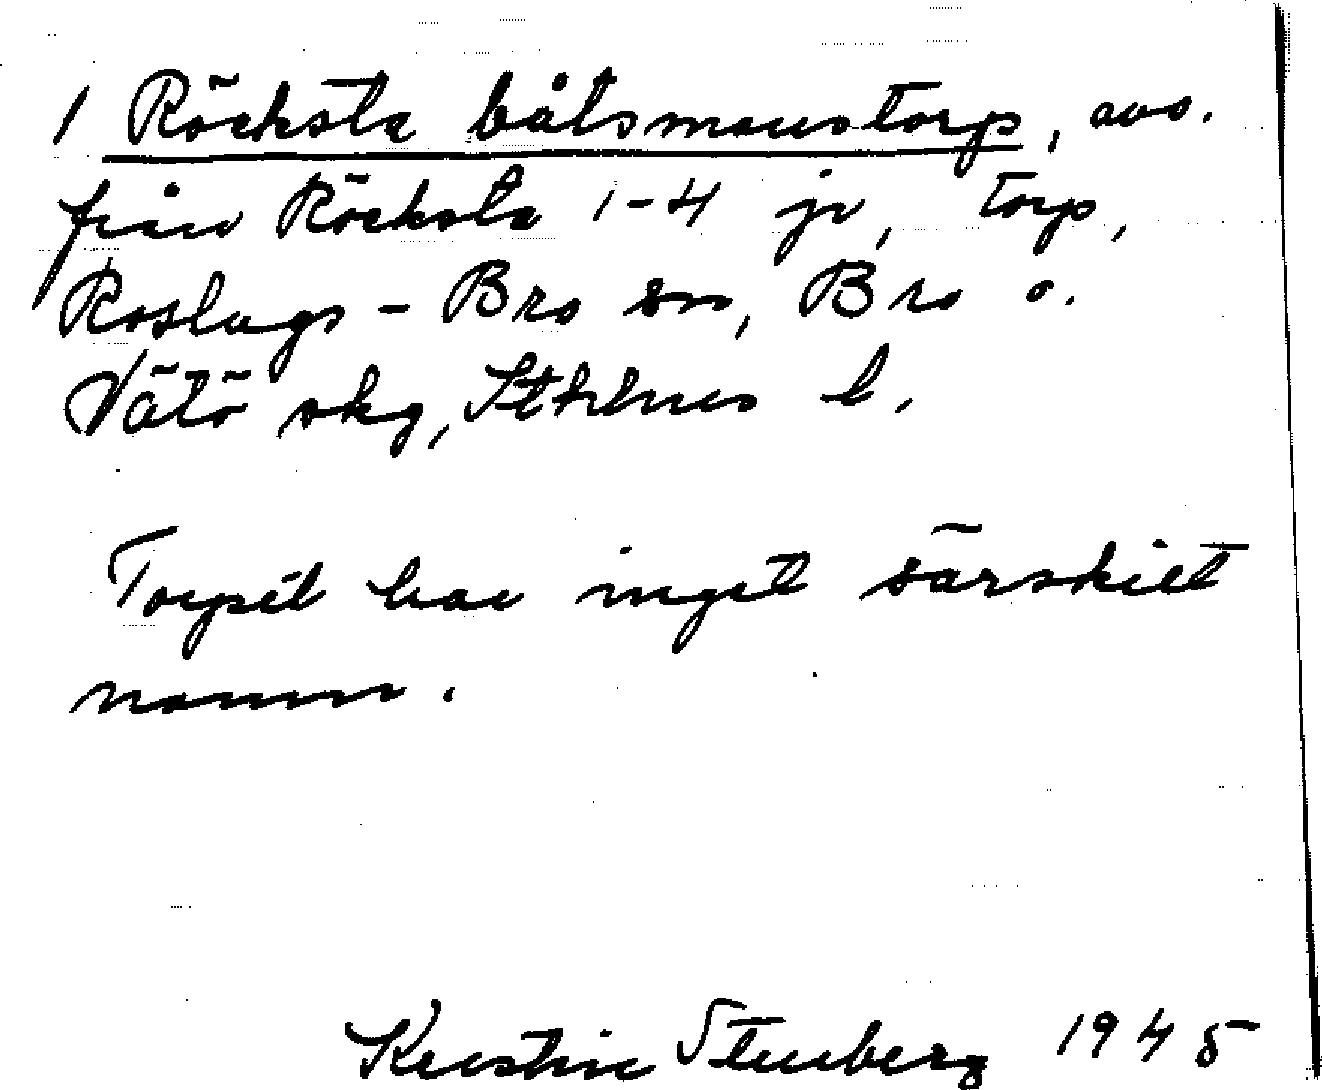 1 Röcksta båtsmanstorp, avs.
från Röcksta 1-4 jr, torp,
Roslags-Bro sn, Bro o.
Vätö skg, Sthlms l.
Torpet har inget särskilt
namn.
Kerstin Stenberg 1945